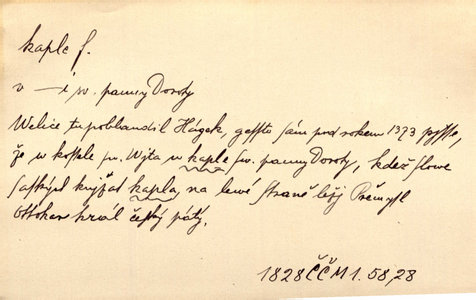 kaple f.
v —i sv. panny Doroty
Welice tu pobloudil Hágek, gessto sám pod rokem 1373 pjsse,
že w kostele sw. Wjta w kaple sw. panny Doroty, kdež slowe
saských knjžat kapla, na lewé straně ležj Přemysl
Ottokar král český pátý.
1828 ČČM 1. 58, 28